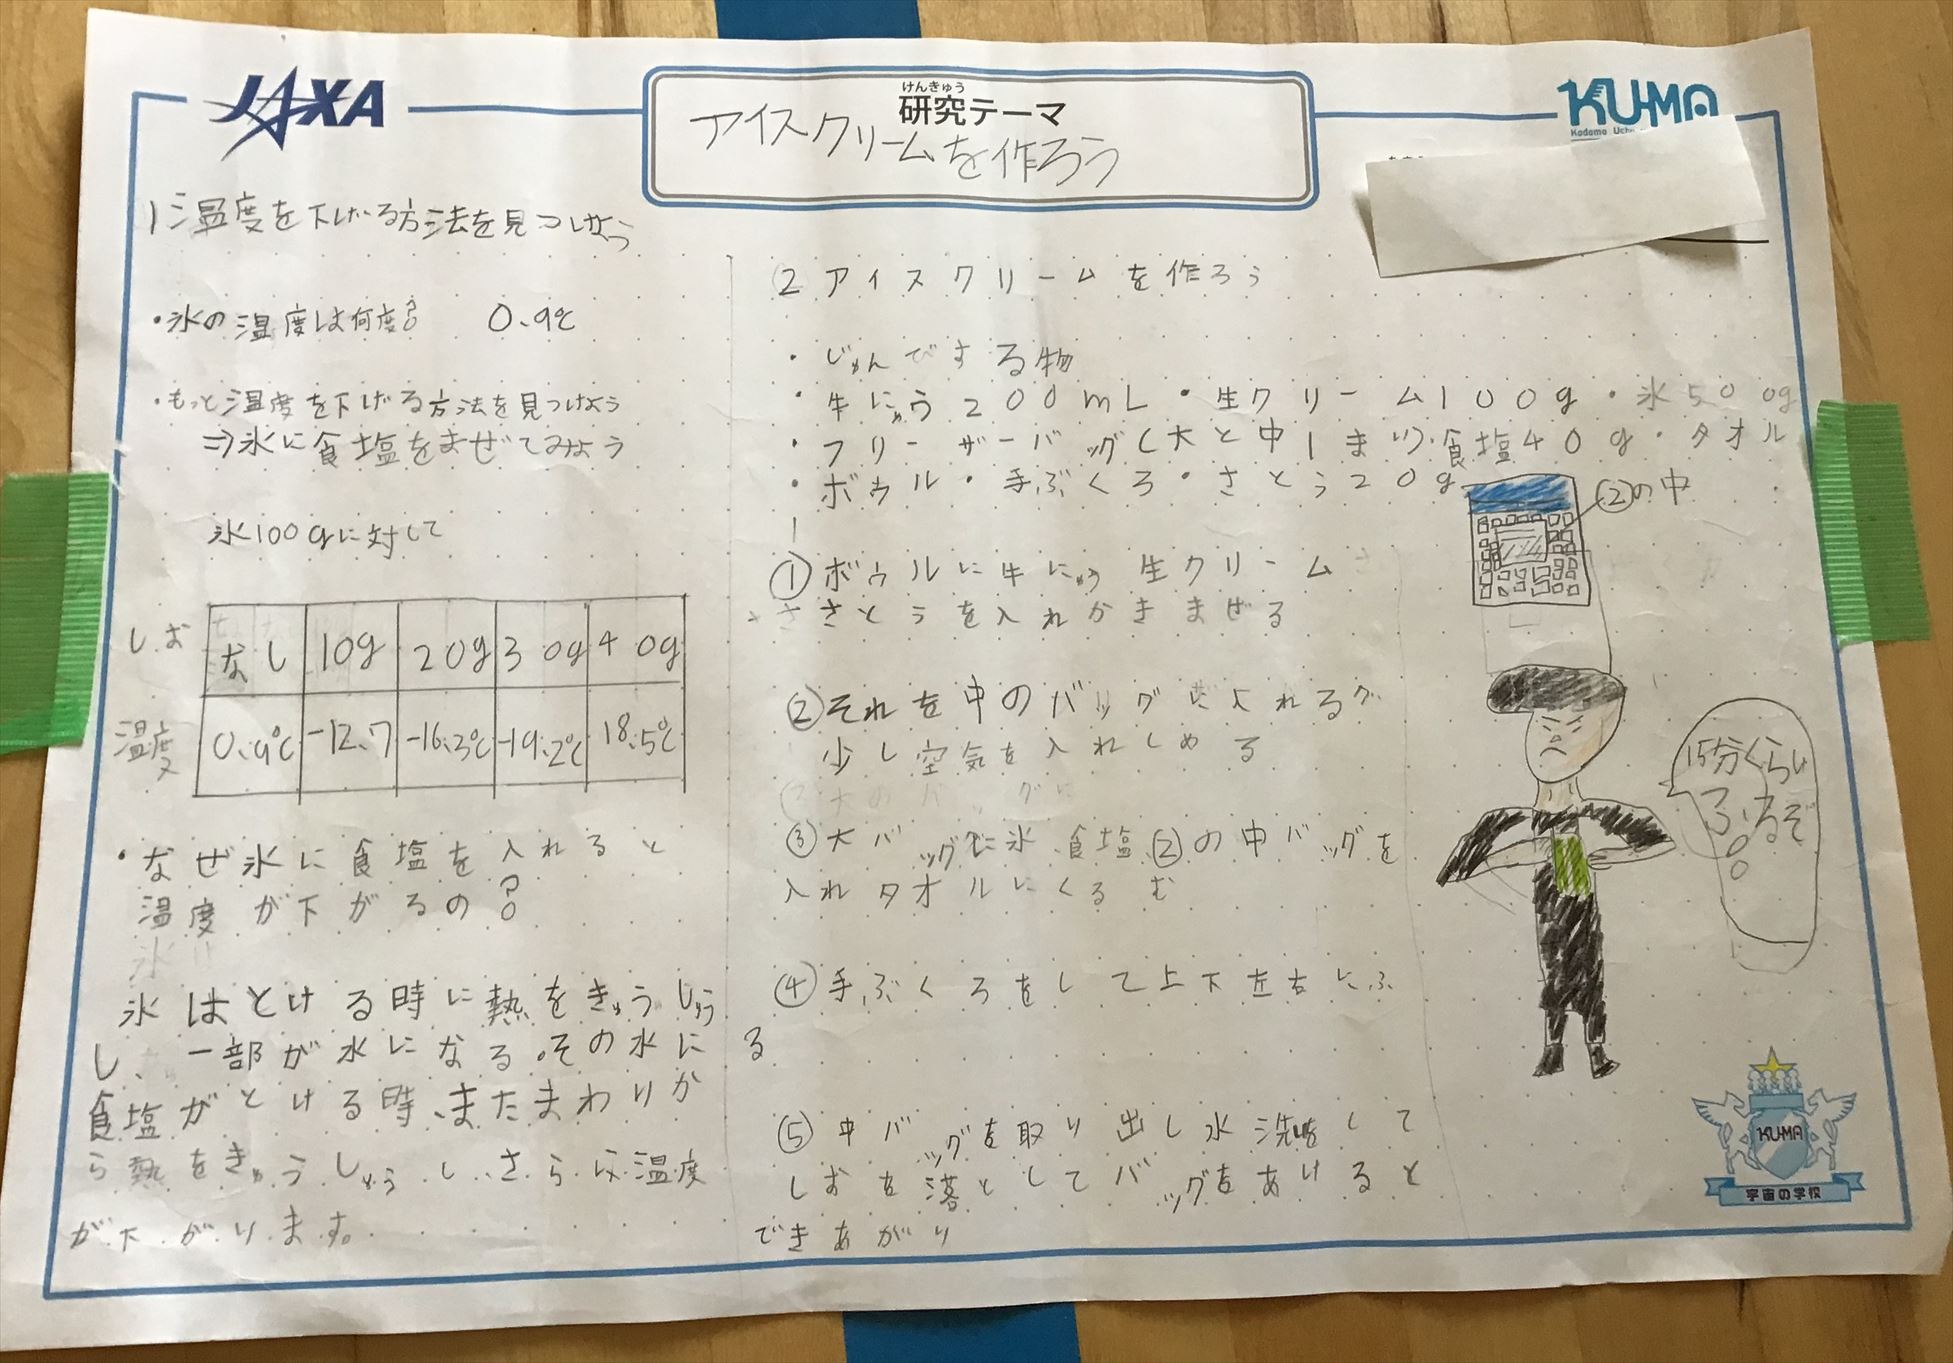 JAXA
けんきゅう
研究テーマ
アイスクリームを作ろう
KUMA
Kodomo Uchu
1 温度を下げる方法を見つけよう
・氷の温度は何度? 0.9℃
・もっと温度を下げる方法を見つけよう
⇒氷に食塩をまぜてみよう
氷100gに対して
しお なし 10g 20g 30g 40g
温度 0.9℃ -12.7 -16.3℃ -19.2℃ 18.5℃
・なぜ氷に食塩を入れると
温度が下がるの?
氷はとける時に熱をきゅうしゅう
し、一部が水になる。その水に
食塩がとける時、またまわりか
ら熱をきゅうしゅうし、さらに温度
が下がります。
2 アイスクリームを作ろう
・じゅんびする物
・牛にゅう200mL・生クリーム100g・氷500g
・フリーザーバッグ(大と中1まい)・食塩40g・タオル
・ボウル・手ぶくろ・さとう20g
①ボウルに牛にゅう生クリーム
さとうを入れかきまぜる
②それを中のバッグに入れる
少し空気を入れしめる
③大バッグに氷食塩②の中バッグを
入れタオルにくるむ
④手ぶくろをして上下左右にふ
る
⑤中バッグを取り出し水洗いをして
しおを落としてバッグをあけると
できあがり
②の中
15分くらい
ふるぞ
KUMA
宇宙の学校